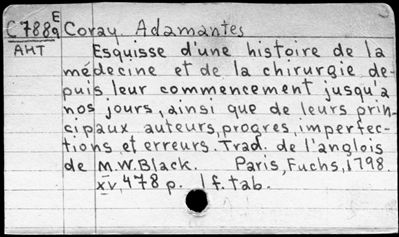 C788 E
a Coray, Adamantes
AHT Esquisse d'une histoire de la
médecine et de la chirurgie de-
puis leur commencement jusqu'a
nos jours, ainsi que de leurs prin-
cipaux auteurs, progres, imperfec-
tions et erreurs. Trad. de l'anglois
de M.W.Black. Paris, Fuchs, 1798.
xv, 478 p. 1 f. tab.